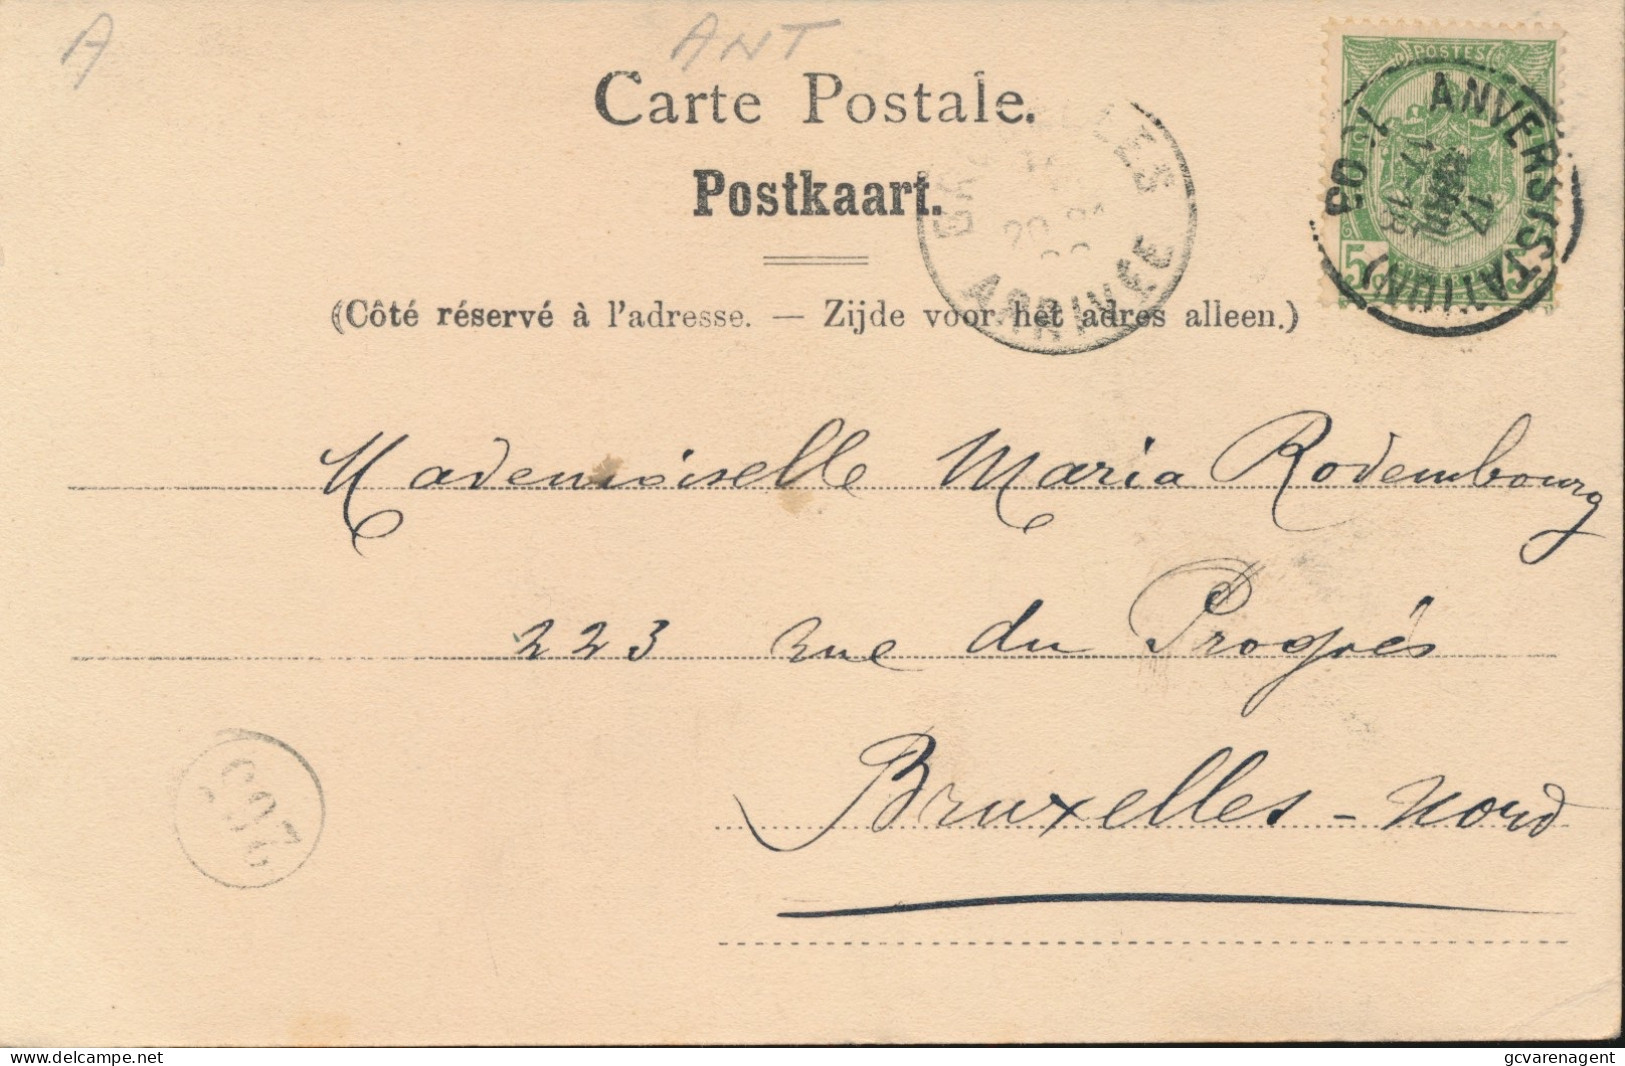 A
ANT
Carte Postale.
Postkaart.
(Côté réservé à l'adresse. — Zijde voor het adres alleen.)
POSTES
5 5
ANVERS (STATION)
17
17-18
1903
BRUXELLES
ARRIVÉE
Mademoiselle Maria Rodembourg
223 rue du Progrès
Bruxelles-Nord
www.delcampe.net
gcvarenagent